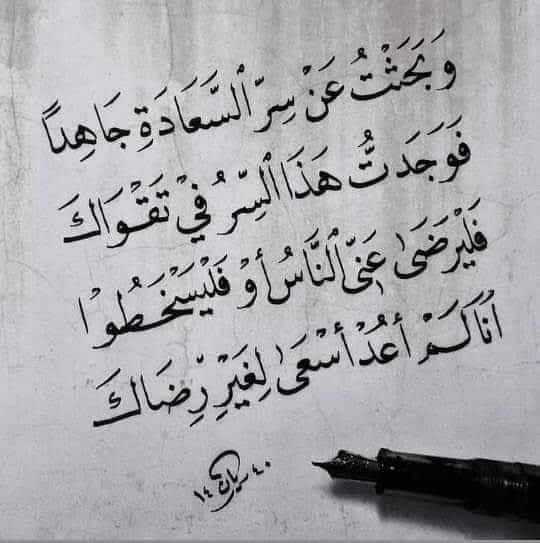 وَبَحَثْتُ عَنْ سِرِّ ٱلسَّعَادَةِ جَاهِداً
فَوَجَدتُّ هَذَا ٱلسِّرُ فِيْ تَقْوَاكَ
فَلْيَرْضَىٰ عَنِّى ٱلنَّاسُ أَوْ فَلْيَسْخَطُوا
أَنَا لَمْ أَعُدْ أَسْعَىٰ لِغَيْرِ رِّضَاكَ